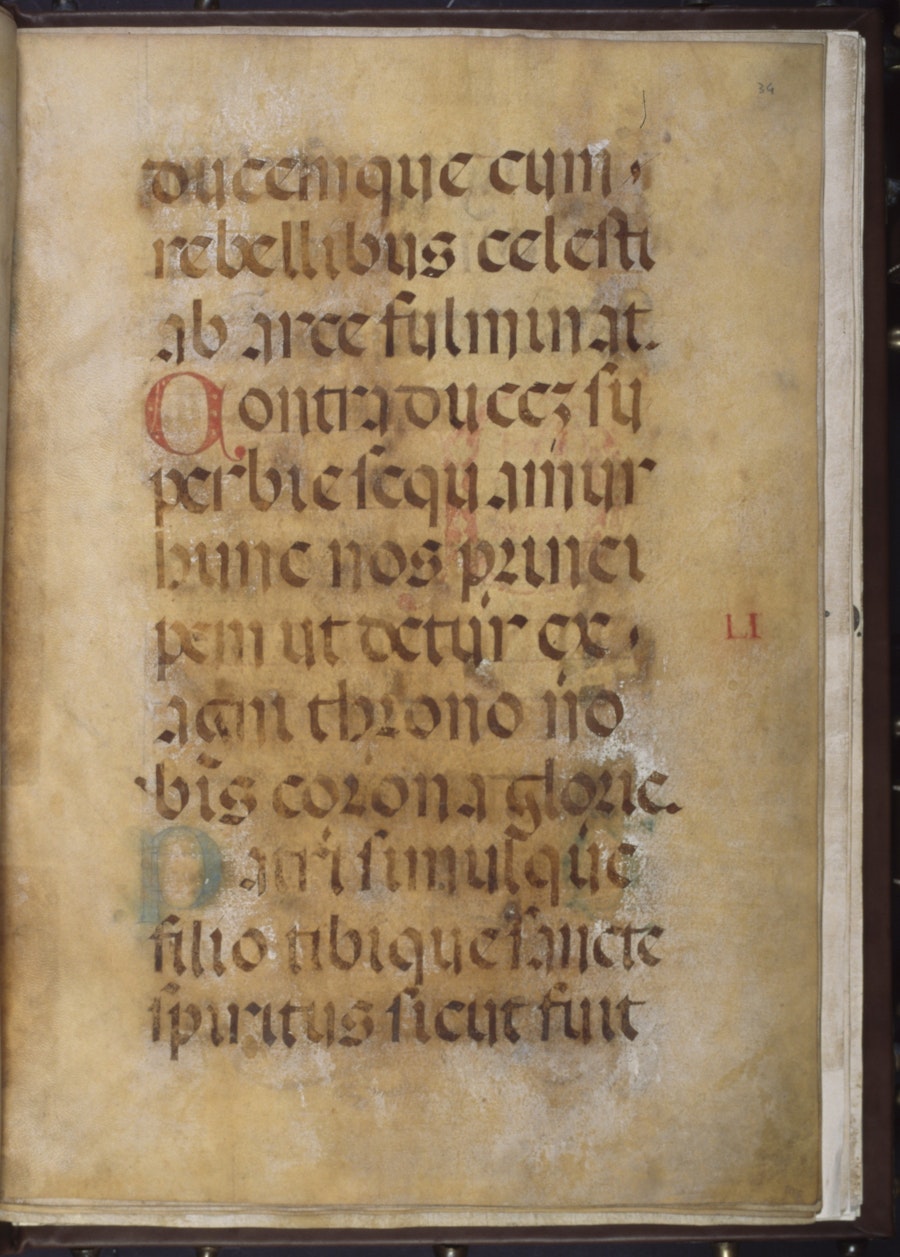 34
ducemque cum
rebellibus celesti
ab arce fulminat.
Contra ducez su
perbie sequamur
hunc nos princi
pem ut detur ex
agni throno no
bis corona glorie.
LI
Patri simulque
filio tibique sancte
spiritus sicut fuit